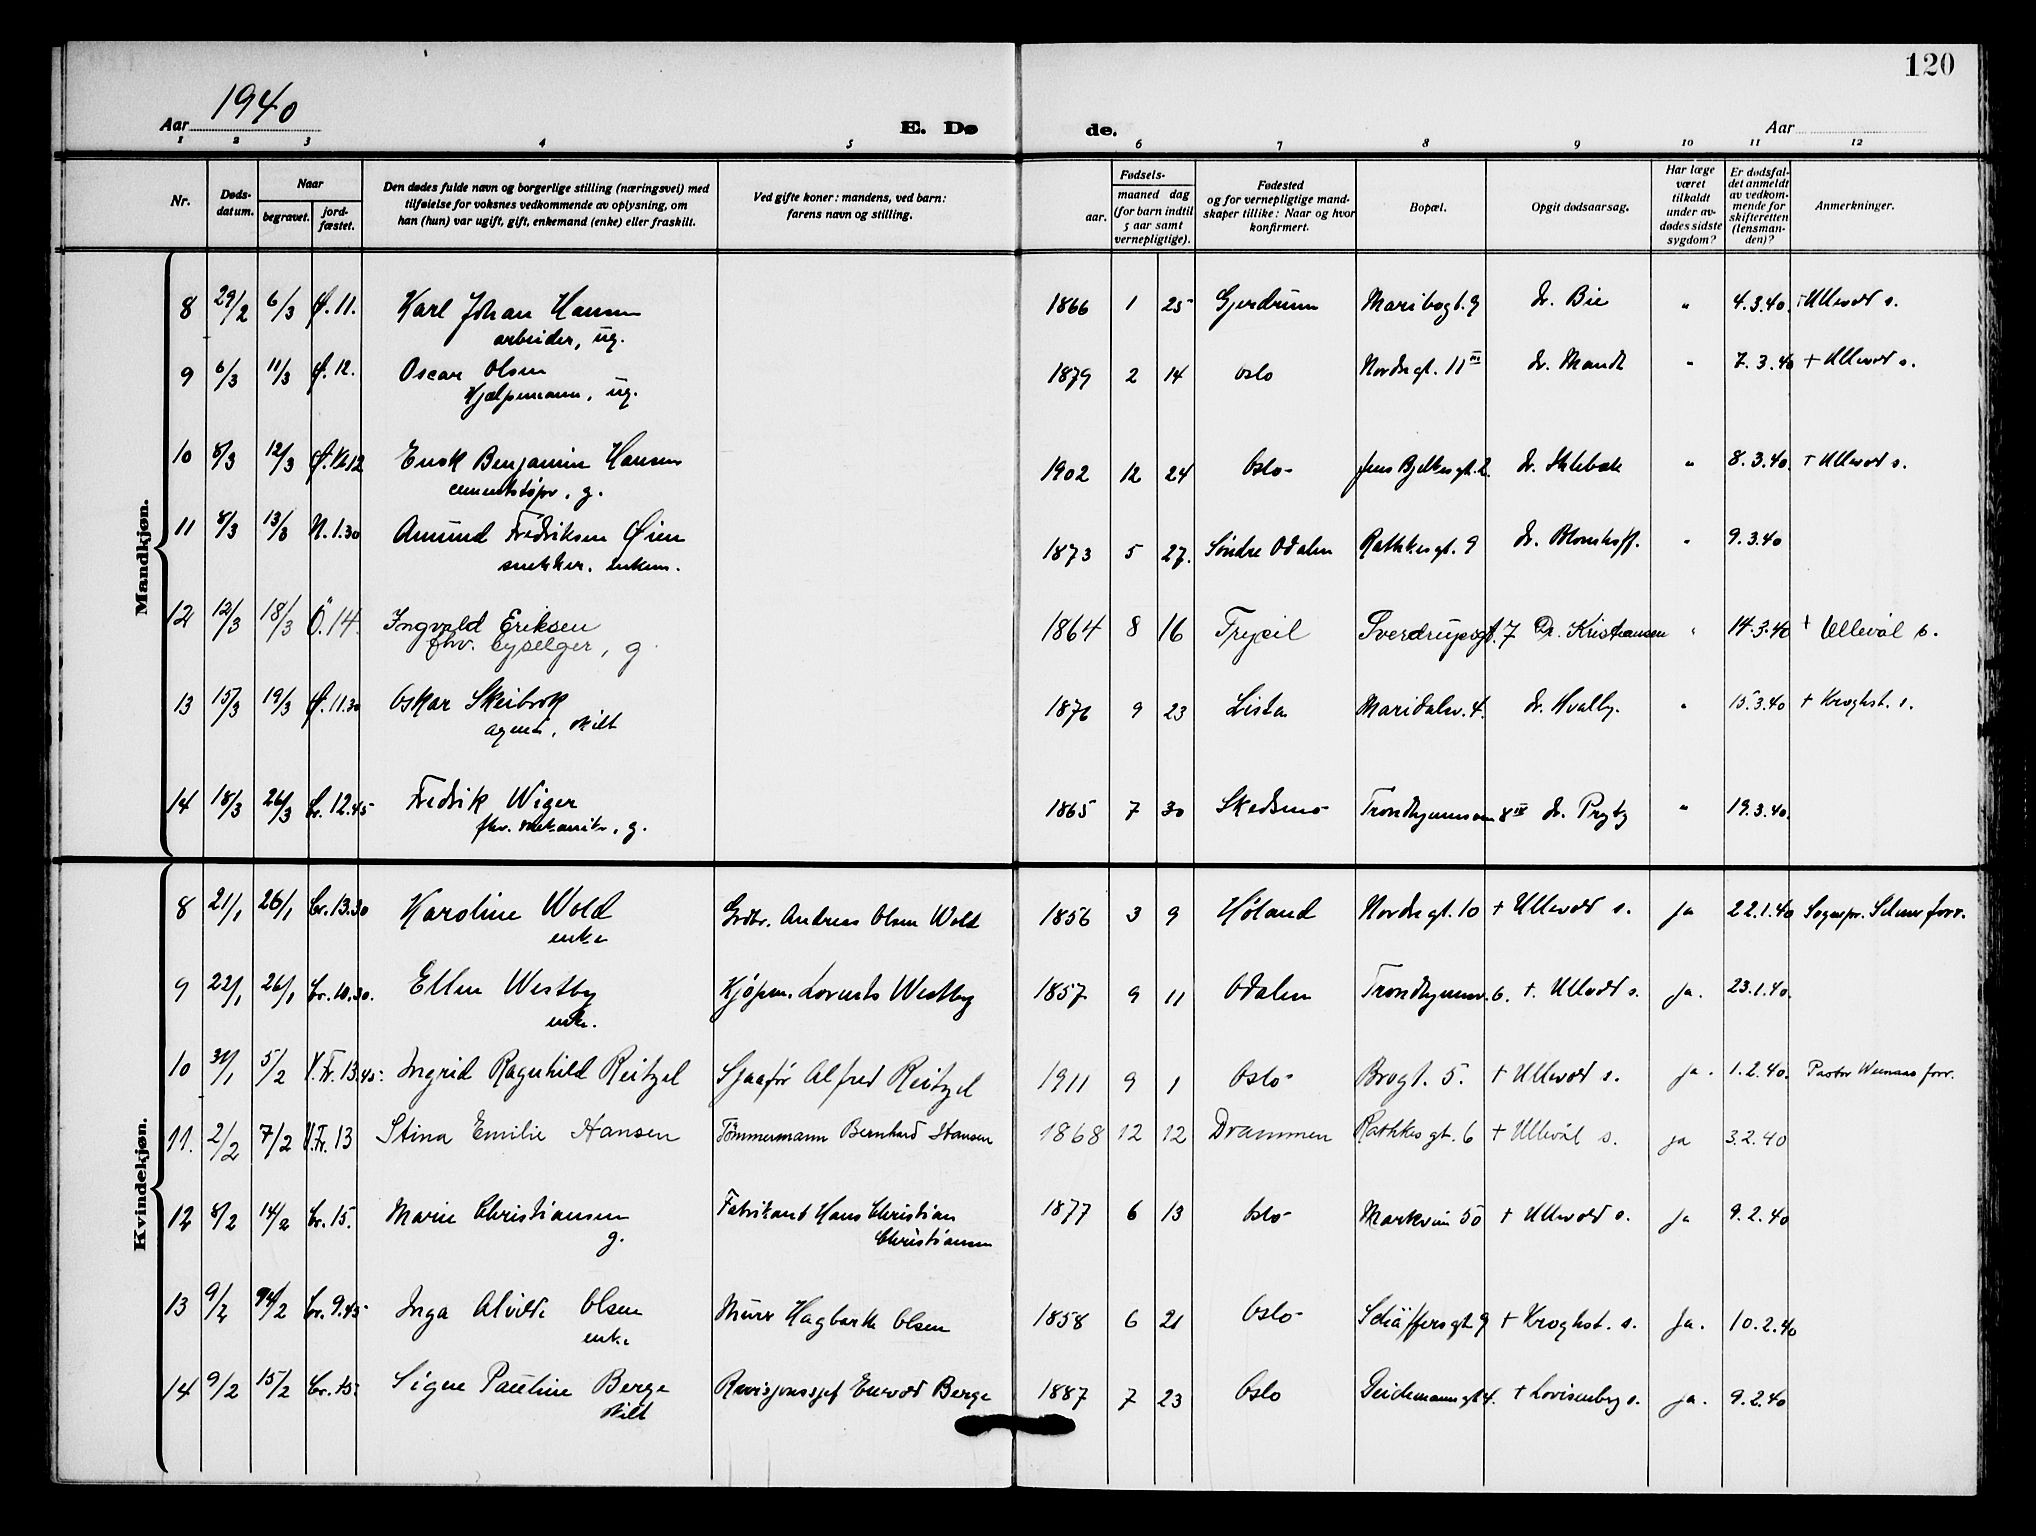 120
Aar 1940
E. Dø
de.
Aar
1 2 3 4 5 6 7 8 9 10 11 12
Nr.
Døds-
datum.
Naar
begravet.
jord-
fæstet.
Den dødes fulde navn og borgerlige stilling (næringsvei) med
tilføielse for voksnes vedkommende av oplysning, om
han (hun) var ugift, gift, enkemand (enke) eller fraskilt.
Ved gifte koner: mandens, ved barn:
farens navn og stilling.
Fødsels-
aar.
maaned dag
(for barn indtil
5 aar samt
vernepligtige).
Fødested
og for vernepligtige mand-
skaper tillike: Naar og hvor
konfirmert.
Bopæl.
Opgit dødsaarsag.
Har læge
været
tilkaldt
under av-
dødes sidste
sygdom?
Er dødsfal-
det anmeldt
av vedkom-
mende for
skifteretten
(lensman-
den)?
Anmerkninger.
Mandkjøn.
8 29/2 6/3 Ø. 11. Karl Johan Hansen 1866 1 25 Gjerdrum Maribogt. 9 Dr. Bie " 4.3.40. + Ullevål s.
arbeider, ug.
9 6/3 11/3 Ø. 12. Oscar Olsen 1879 2 14 Oslo Nordregt. 11 III Dr. Mandt " 7.3.40 + Ullevål s.
Hjælpemann, ug.
10 8/3 12/3 Ø. Benjamin Hansen 1902 12 24 Oslo Jens Bjelkesgt. 2. Dr. " 8.3.40. + Ullevål s.
cementstøper, g.
11 8/3 13/3 N. 1.30 Amund Fredriksen Øien 1873 5 27. Søndre Odalen Rathkesgt. 9 Dr. " 9.3.40
snekker. enkem.
12 12/3 18/3 Ö. 14. Ingvald Eriksen 1864 8 16 Trysil Sverdrupsgt. 7 Dr. Kristiansen " 14.3.40 + Ullevål s.
fhv. byselger, g.
13 15/3 19/3 Ø. 11.30 Oskar Skeibrok 1876 9 23 Lista Maridalsv. 4. Dr. Hvalby. " 15.3.40 + Kroghst. s.
agent, skilt
14 18/3 26/3 Cr. 12.45 Fredrik Wiger 1865 7 30 Skedsmo Trondhjemsvn 8 IV Dr. Pryty " 19.3.40.
fhv. mekaniker, g.
Kvindekjøn.
8 21/1 26/1 Cr. 13.30 Karoline Wold Grdbr. Andreas Olsen Wold 1856 3 9 Høland Nordregt. 10 + Ullevål s. ja 22.1.40 Sognepr. Selmer forr.
enke
9 22/1 26/1 Cr. 10.30. Ellen Westby Kjøpm. Lorents Westby 1857 9 11 Odalen Trondhjemsv. 6. +. Ullevål s. ja. 23.1.40.
enke.
10 31/1 5/2 V. Fr. 13.45. Ingrid Ragnhild Reitzel Sjaafør Alfred Reitzel 1911 9 1 Oslo Brogt. 5. + Ullevål s. ja. 1.2.40. Pastor forr.
11. 2/2 7/2 V. Fr. 13 Stina Emilie Hansen Tömmermann Bernhard Hansen 1868 12 12 Drammen Rathkesgt. 6 + Ullevål s. ja 3.2.40
12 8/2 14/2 Cr. 15. Marie Christiansen Fabrikant Hans Christian 1877 6 13 Oslo Markveien 50 + Ullevål s. ja 9.2.40
g. Christiansen
13 9/2 14/2 Cr. 9.45 Inga Alvilde Olsen Murer Hagbarth Olsen 1858 6 21 Oslo Schäffersgt. 9 + Kroghst. s. Ja. 10.2.40
enke
14 9/2 15/2 Cr. 15. Signe Pauline Berge Revisjonssjef Enevold Berge 1887 7 23 Oslo Deichmannsgt 4. + Lovisenberg s. ja. 9.2.40
skilt